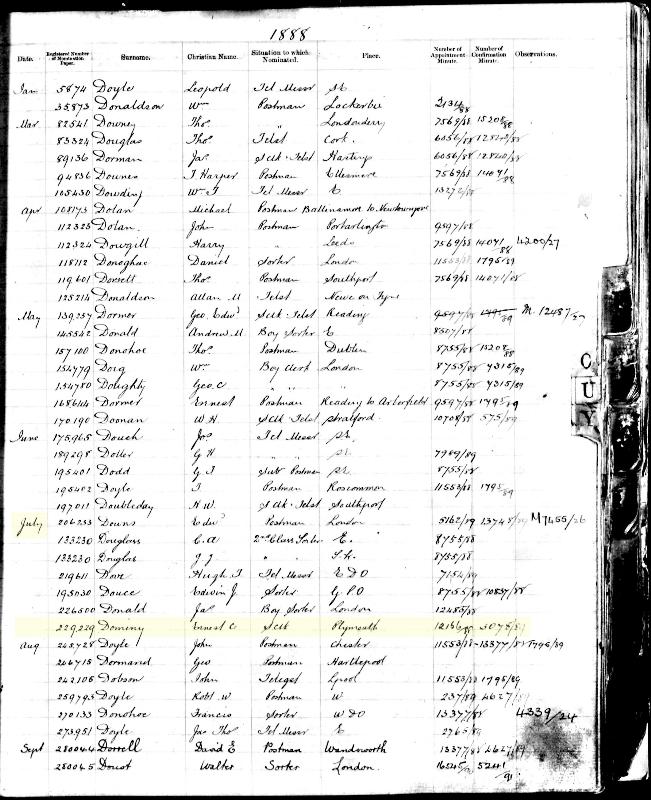 1888
Date. Registered Number of Nomination Paper. Surname. Christian Name. Situation to which Nominated. Place. Number of Appointment Minute. Number of Confirmation Minute. Observations.
Jan 5874 Doyle Leopold Tel Messr
35873 Donaldson Wm Postman Lockerbie
Mar 82541 Downey Thos " Londonderry 7569/88 15208/88
83324 Douglas Thos Telst Cork 6056/88
89136 Dorman Jas SC&Telst Hastings 6056/88 12840/88
94836 Downes T Harper Postman Ellesmere 7569/88 14071/88
105430 Dowding Wm T Tel Messr E
Apr 108173 Dolan Michael Postman Ballinamore to Newtowngore
112323 Dolan John Postman Portarlington 9597/88
112324 Dowgill Harry " Leeds 7569/88 14071/88 4200/27
118112 Donoghue Daniel Sorter London 11553/88 1795/89
119601 Dorrett Thos Postman Southport 7569/88 14071/88
125214 Donaldson Allan M Telst Newc on Tyne
May 139257 Dormer Geo. Edwd SC&Telst Reading 9597/88
145542 Donald Andrew M Boy Sorter E. 8507/88
157100 Donohoe Thos Postman Dublin 8755/88 15208/88
154779 Doig Wm Boy Clerk London 8755/88 7315/89
154780 Doughty Geo. C " " " 8755/88 7315/89
168614 Dormer Ernest Postman Reading to Arborfield 9597/88 1795/89
170190 Doonan W H SC&Telst Stratford. 10708/88 575/89
June 175,965 Douch Jas Tel Messr S.E.
189298 Doller G H " S.E. 7989/89
195401 Dodd G T Sub Postman S.E. 8755/88
195402 Doyle T Postman Roscommon 11553/88 1795/89
197011 Doubleday H W. SC&Telst Southport
July 206253 Downs Edwd Postman London 5162/89 13748/89 M7455/26
133230 Douglass C. A 2nd Class Sorter E. 8755/88
133230 Douglas J. J " 8755/88
219611 Dove Hugh T Tel Messr E D O 7154/89
195030 Douce Edwin J. Sorter G P O 8755/88 10857/88
226500 Donald Jas Boy Sorter London 12485/88
229,229 Dominy Ernest C SC&T Plymouth 12156/88 5075/89
Aug 245728 Doyle John Postman Chester 11553/88 13377/88 1795/89
246715 Dormand Geo Postman Hartlepool
242106 Dobson John Telegst Lpool 11553/88 1795/89
259793 Doyle Robt W Postman W 237/89 4627/89
270133 Donohoe Francis Sorter W D O 13377/88 4339/24
273951 Doyle Jas Thos Tel Messr E 2765/89
Sept 280044 Dorrell David E Postman Wandsworth 13377/88 4627/89
280045 Doust Walter Sorter London. 5241/91
C
U